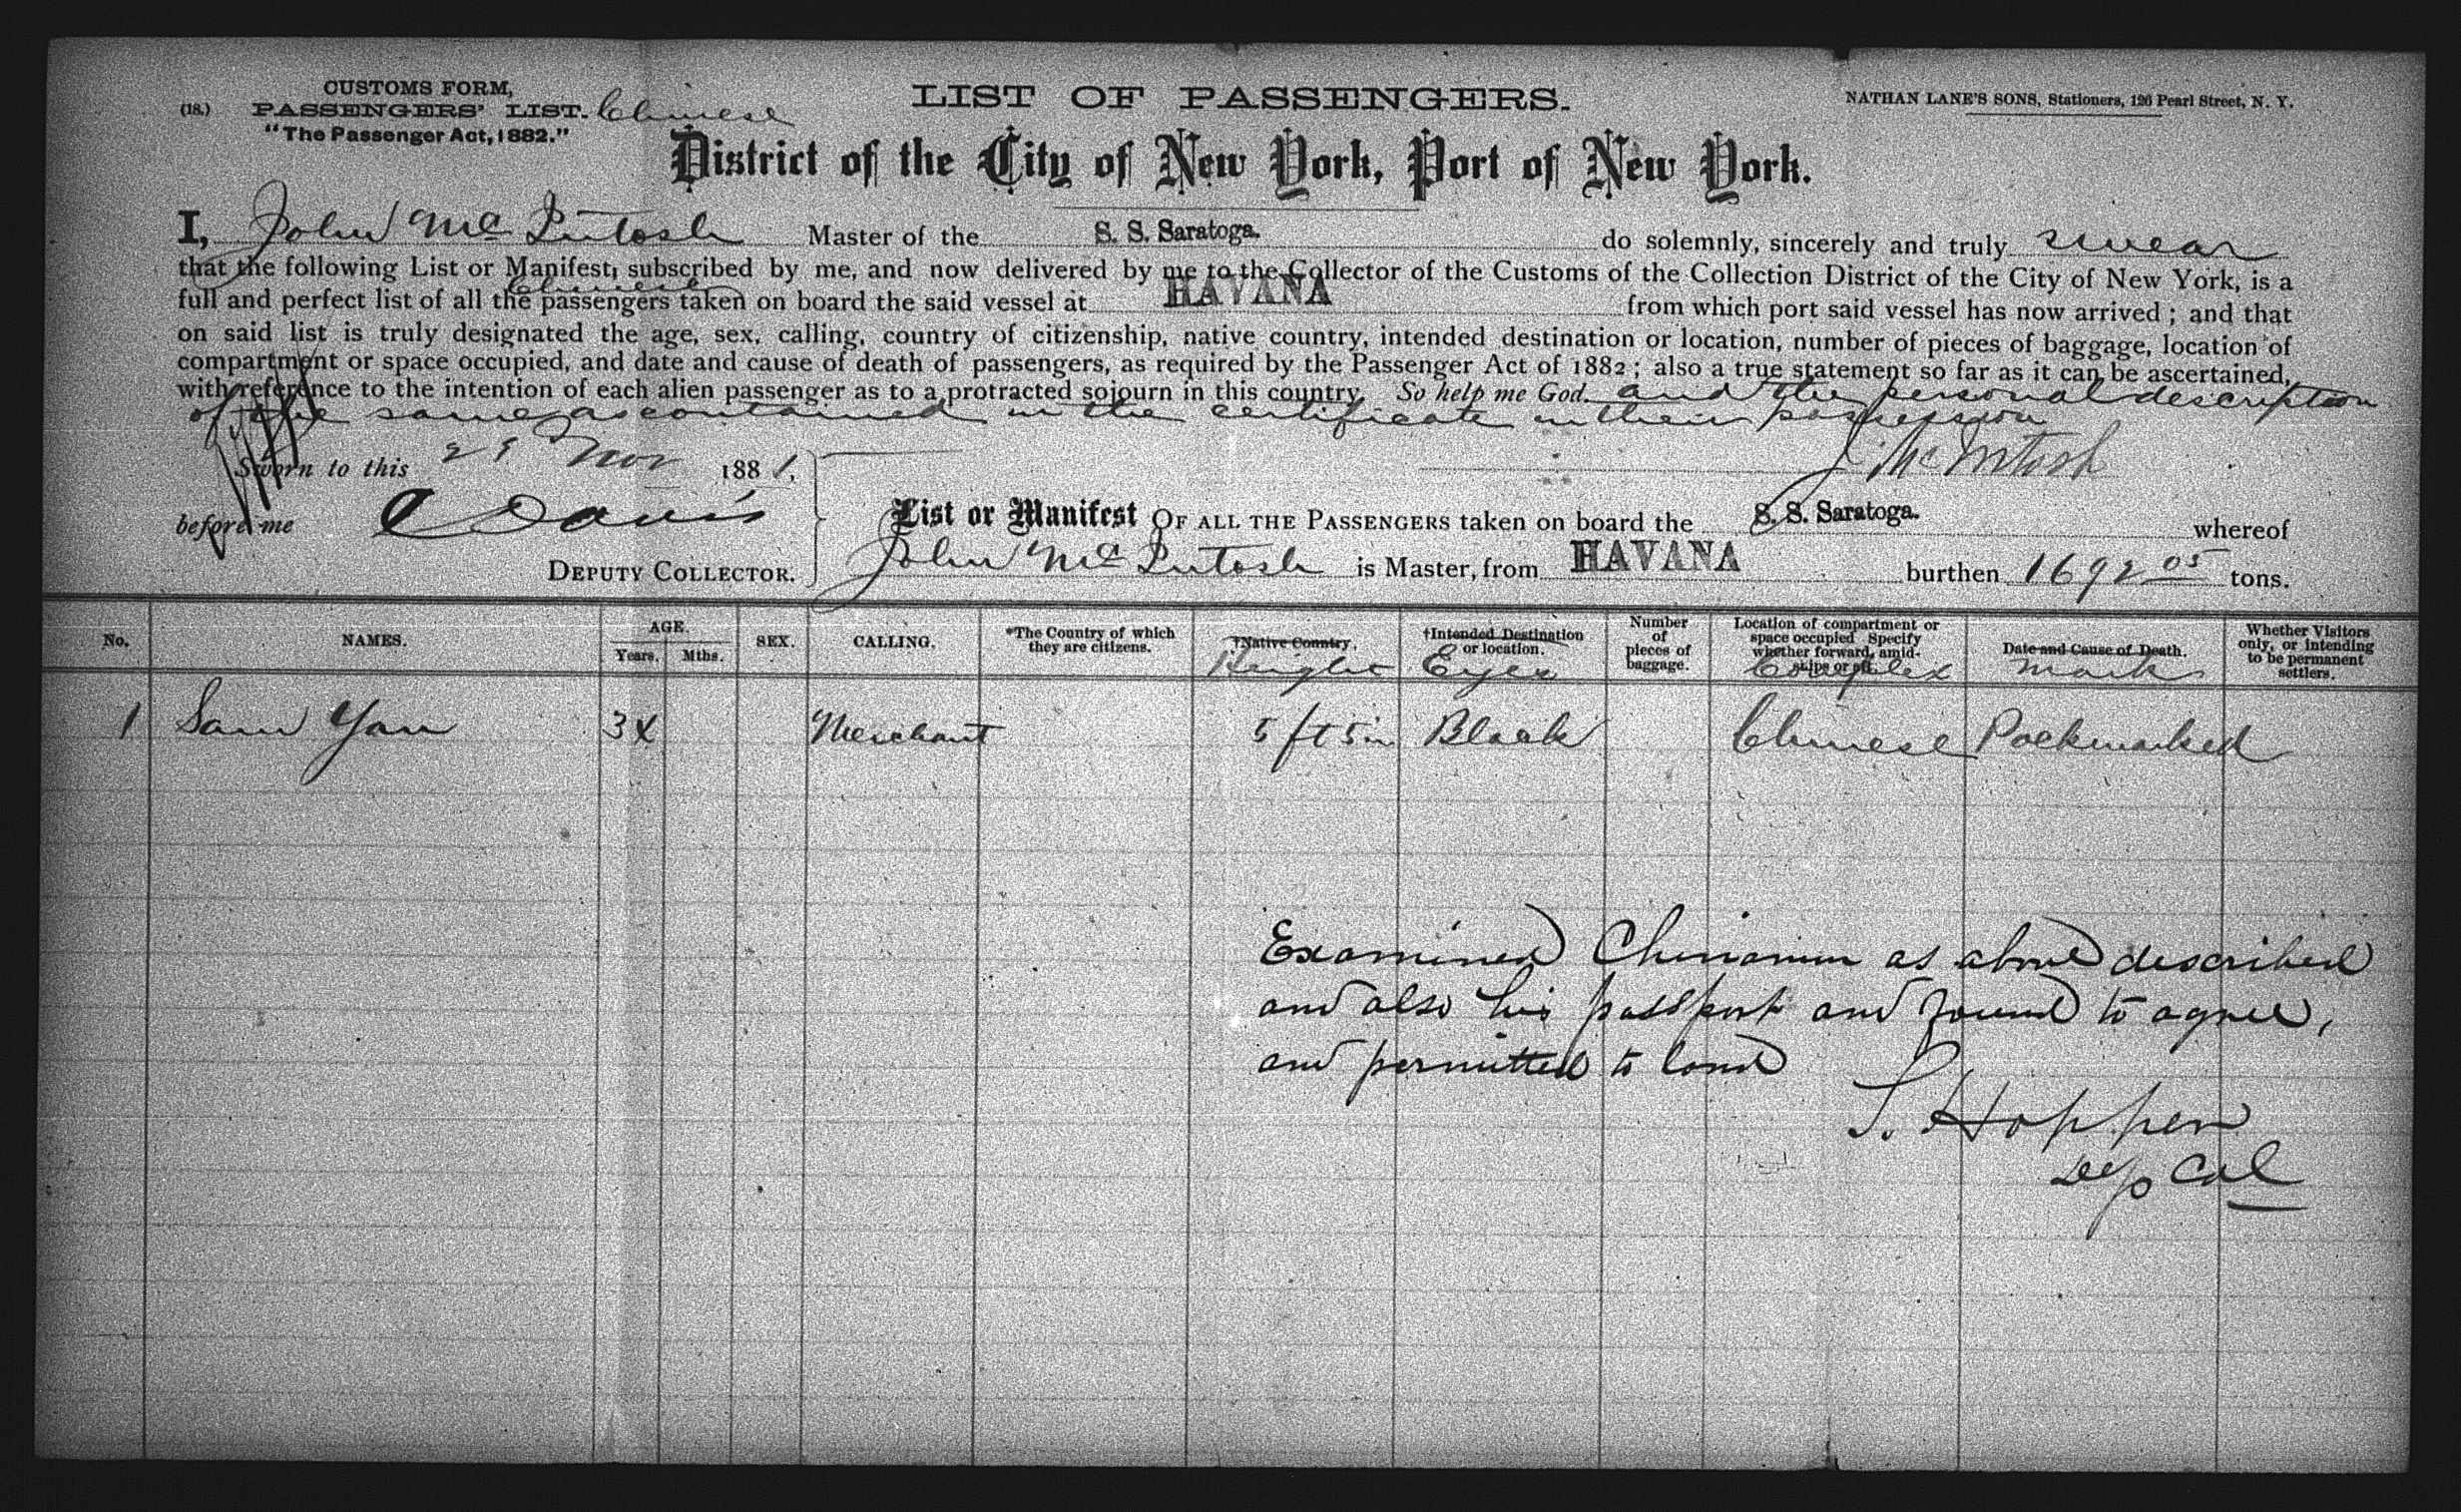 CUSTOMS FORM,
(18.) PASSENGERS' LIST. Chinese
"The Passenger Act, 1882."
LIST OF PASSENGERS.
NATHAN LANE'S SONS, Stationers, 126 Pearl Street, N. Y.
District of the City of New York, Port of New York.
I, John McIntosh Master of the S. S. Saratoga. do solemnly, sincerely and truly swear
that the following List or Manifest, subscribed by me, and now delivered by me to the Collector of the Customs of the Collection District of the City of New York, is a
Chinese
full and perfect list of all the passengers taken on board the said vessel at HAVANA from which port said vessel has now arrived; and that
on said list is truly designated the age, sex, calling, country of citizenship, native country, intended destination or location, number of pieces of baggage, location of
compartment or space occupied, and date and cause of death of passengers, as required by the Passenger Act of 1882; also a true statement so far as it can be ascertained,
with reference to the intention of each alien passenger as to a protracted sojourn in this country. So help me God. and the personal description
of the same as contained in the certificate in their possession
J McIntosh
Sworn to this Nov 188
before me C Davis
DEPUTY COLLECTOR.
List or Manifest OF ALL THE PASSENGERS taken on board the S. S. Saratoga. whereof
John McIntosh is Master, from HAVANA burthen 1692 05 tons.
No. NAMES. AGE. Years. Mths. SEX. CALLING. *The Country of which they are citizens. †Native Country. Height †Intended Destination or location. Eyes Number of pieces of baggage. Location of compartment or space occupied Specify whether forward, amidships or aft. Complex Date and Cause of Death. Mark Whether Visitors only, or intending to be permanent settlers.
1 Sam Yan 34 Merchant 5 ft 5 in Black Chinese Pockmarked
Examined Chinaman as above described
and also his passport and found to agree,
and permitted to land
S. Hopper
Dep Col